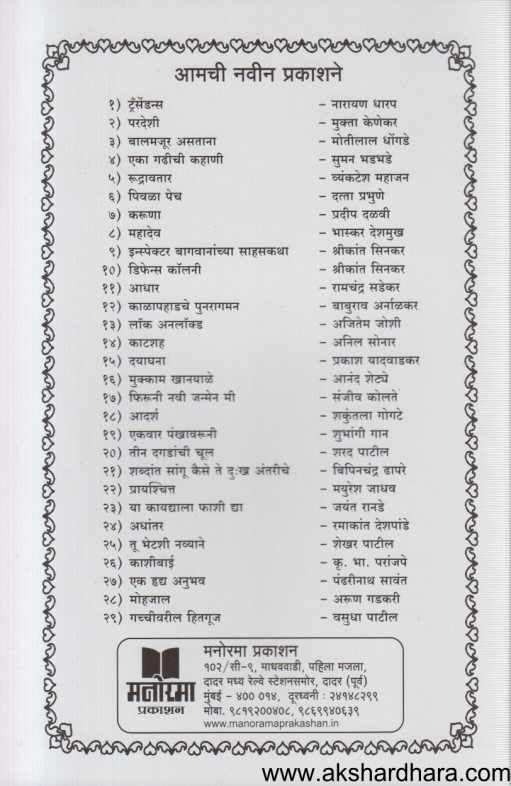 आमची नवीन प्रकाशने
१) ट्रॅंसेंडन्स – नारायण धारप
२) परदेशी – मुक्ता केणेकर
३) बालमजूर असताना – मोतीलाल धोंगडे
४) एका गढीची कहाणी – सुमन भडभडे
५) रूद्रावतार – व्यंकटेश महाजन
६) पिवळा पेच – दत्ता प्रभुणे
७) करूणा – प्रदीप दळवी
८) महादेव – भास्कर देशमुख
९) इन्स्पेक्टर बागवानांच्या साहसकथा – श्रीकांत सिनकर
१०) डिफेन्स कॉलनी – श्रीकांत सिनकर
११) आधार – रामचंद्र सडेकर
१२) काळापहाडचे पुनरागमन – बाबुराव अर्नाळकर
१३) लॉक अनलॉक्ड – अजितेम जोशी
१४) काटशह – अनिल सोनार
१५) दयाघना – प्रकाश यादवाडकर
१६) मुक्काम खानयाळे – आनंद शेट्ये
१७) फिरूनी नवी जन्मेन मी – संजीव कोलते
१८) आदर्श – शकुंतला गोगटे
१९) एकवार पंखावरूनी – शुभांगी गान
२०) तीन दगडांची चूल – शरद पाटील
२१) शब्दांत सांगू कैसे ते दुःख अंतरीचे – बिपिनचंद्र ढापरे
२२) प्रायश्चित्त – मयुरेश जाधव
२३) या कायद्याला फाशी द्या – जयंत रानडे
२४) अधांतर – रमाकांत देशपांडे
२५) तू भेटशी नव्याने – शेखर पाटील
२६) काशीबाई – कृ. भा. परांजपे
२७) एक हृद्य अनुभव – पंढरीनाथ सावंत
२८) मोहजाल – अरूण गडकरी
२९) गच्चीवरील हितगूज – वसुधा पाटील
मनोरमा
प्रकाशन
मनोरमा प्रकाशन
१०२/सी-९, माधववाडी, पहिला मजला,
दादर मध्य रेल्वे स्टेशनसमोर, दादर (पूर्व)
मुंबई – ४०० ०१४. दूरध्वनी : २४१४८२९९
मोबा. ९८१९२००४०८, ९८६९९४०६३९
www.manoramaprakashan.in
www.akshardhara.com